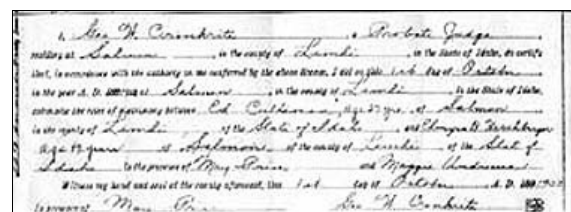 I, Geo W. Cronkrite a Probate Judge
residing at Salmon in the county of Lemhi, in the State of Idaho, do certify
that, in accordance with the authority on me conferred by the above license, I did on this 1st day of October
in the year A. D. at Salmon, in the county of Lemhi in the State of Idaho,
solemnize the rites of matrimony between Ed age 27 yrs of Salmon
in the county of Lemhi, of the State of Idaho and
age 19 years of Salmon, of the county of Lemhi of the State of
Idaho in the presence of May and Maggie
Witness my hand and seal at the county aforesaid, this 1st day of October A. D.
May Geo W. Cronkrite